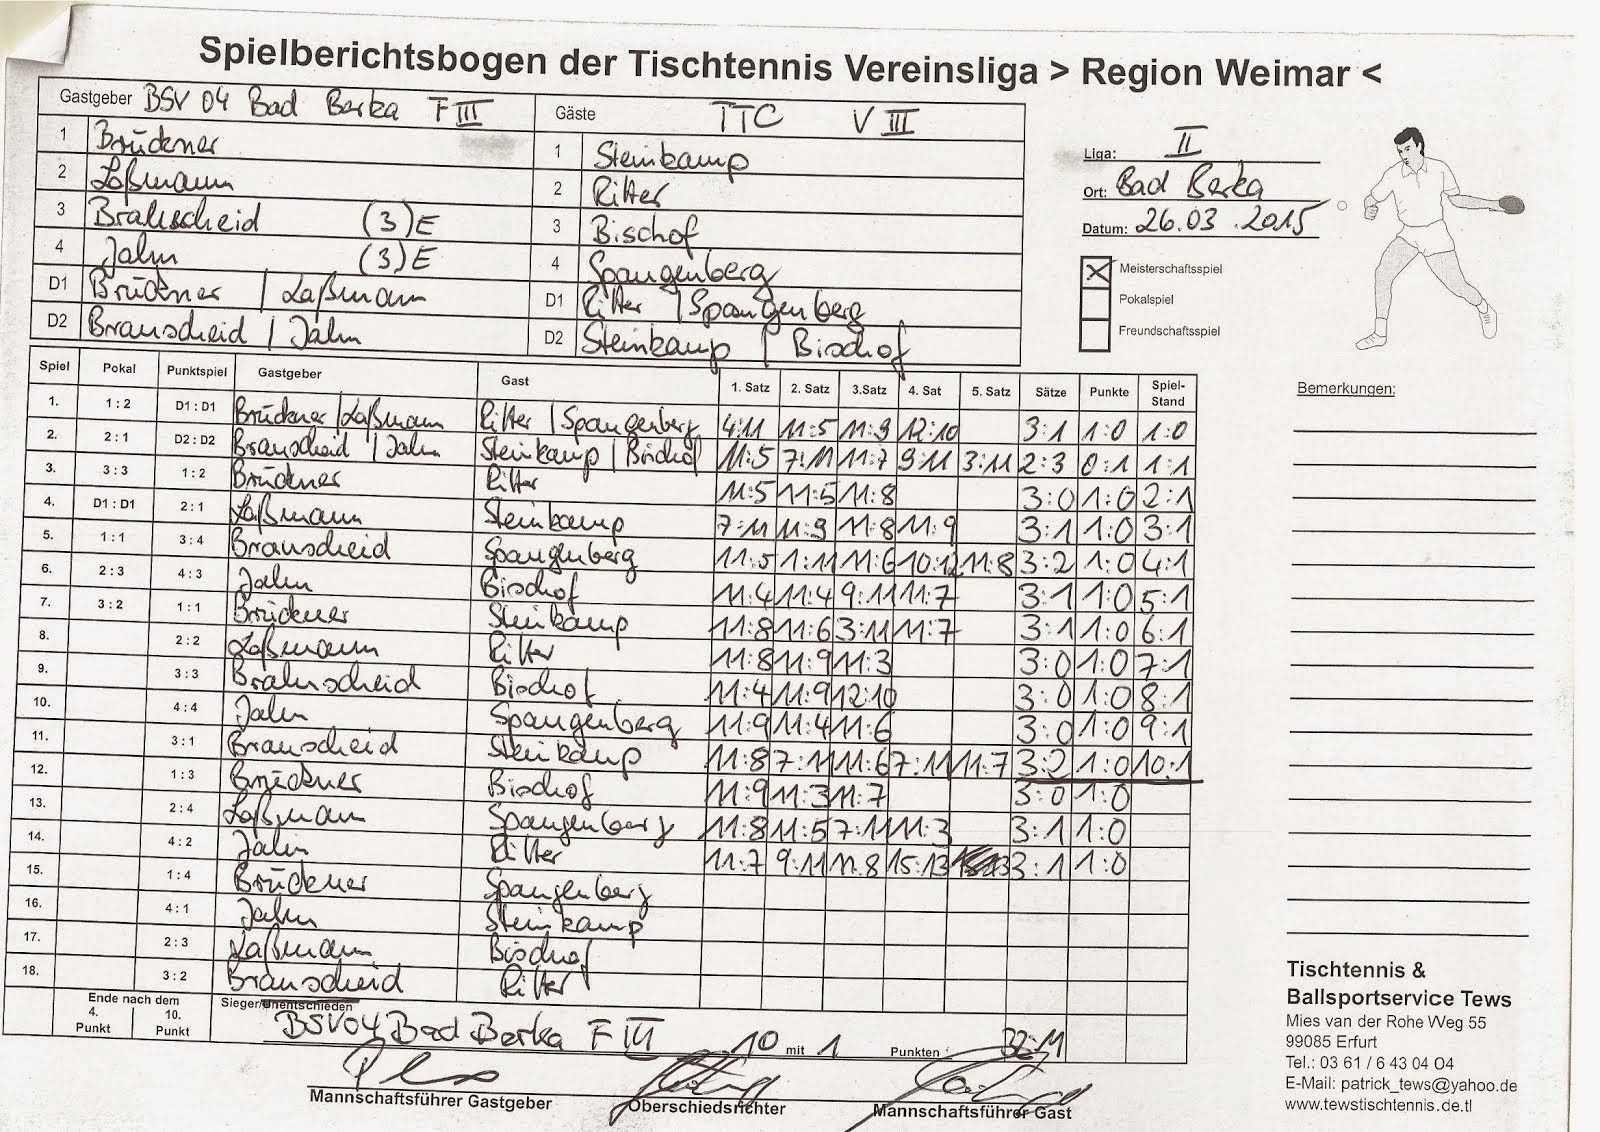 Spielberichtsbogen der Tischtennis Vereinsliga > Region Weimar <
Gastgeber BSV 04 Bad Berka F III Gäste TTC V III
1 Brückner 1 Steinkamp
2 Laßmann 2 Ritter
3 Brahscheid (3)E 3 Bischof
4 Jahn (3)E 4 Spangenberg
D1 Brückner / Laßmann D1 Ritter / Spangenberg
D2 Branscheid / Jahn D2 Steinkamp / Bischof
Liga: II
Ort: Bad Berka
Datum: 26.03.2015
X Meisterschaftsspiel
Pokalspiel
Freundschaftsspiel
Spiel Pokal Punktspiel Gastgeber Gast 1. Satz 2. Satz 3.Satz 4. Sat 5. Satz Sätze Punkte Spiel-Stand
1. 1 : 2 D1 : D1 Brückner / Laßmann Ritter / Spangenberg 4:11 11:5 11:9 12:10 3:1 1:0 1:0
2. 2 : 1 D2 : D2 Branscheid / Jahn Steinkamp / Bischof 11:5 7:11 11:7 9:11 3:11 2:3 0:1 1:1
3. 3 : 3 1 : 2 Brückner Ritter 11:5 11:5 11:8 3:0 1:0 2:1
4. D1 : D1 2 : 1 Laßmann Steinkamp 7:11 11:9 11:8 11:9 3:1 1:0 3:1
5. 1 : 1 3 : 4 Branscheid Spangenberg 11:5 1:11 11:6 10:12 11:8 3:2 1:0 4:1
6. 2 : 3 4 : 3 Jahn Bischof 11:4 11:4 9:11 11:7 3:1 1:0 5:1
7. 3 : 2 1 : 1 Brückner Steinkamp 11:8 11:6 3:11 11:7 3:1 1:0 6:1
8. 2 : 2 Laßmann Ritter 11:8 11:9 11:3 3:0 1:0 7:1
9. 3 : 3 Brahnscheid Bischof 11:4 11:9 12:10 3:0 1:0 8:1
10. 4 : 4 Jahn Spangenberg 11:9 11:4 11:6 3:0 1:0 9:1
11. 3 : 1 Branscheid Steinkamp 11:8 7:11 11:6 7:11 11:7 3:2 1:0 10:1
12. 1 : 3 Brückner Bischof 11:9 11:3 11:7 3:0 1:0
13. 2 : 4 Laßmann Spangenberg 11:8 11:5 7:11 11:3 3:1 1:0
14. 4 : 2 Jahn Ritter 11:7 9:11 11:8 15:13 3:1 1:0
15. 1 : 4 Brückner Spangenberg
16. 4 : 1 Jahn Steinkamp
17. 2 : 3 Laßmann Bischof
18. 3 : 2 Branscheid Ritter
Ende nach dem
4. Punkt 10. Punkt
Sieger/Unentschieden
BSV04 Bad Berka F III 10 mit 1 Punkten : 32:11
Mannschaftsführer Gastgeber Oberschiedsrichter Mannschaftsführer Gast
Bemerkungen:
Tischtennis &
Ballsportservice Tews
Mies van der Rohe Weg 55
99085 Erfurt
Tel.: 03 61 / 6 43 04 O4
E-Mail: patrick_tews@yahoo.de
www.tewstischtennis.de.tl